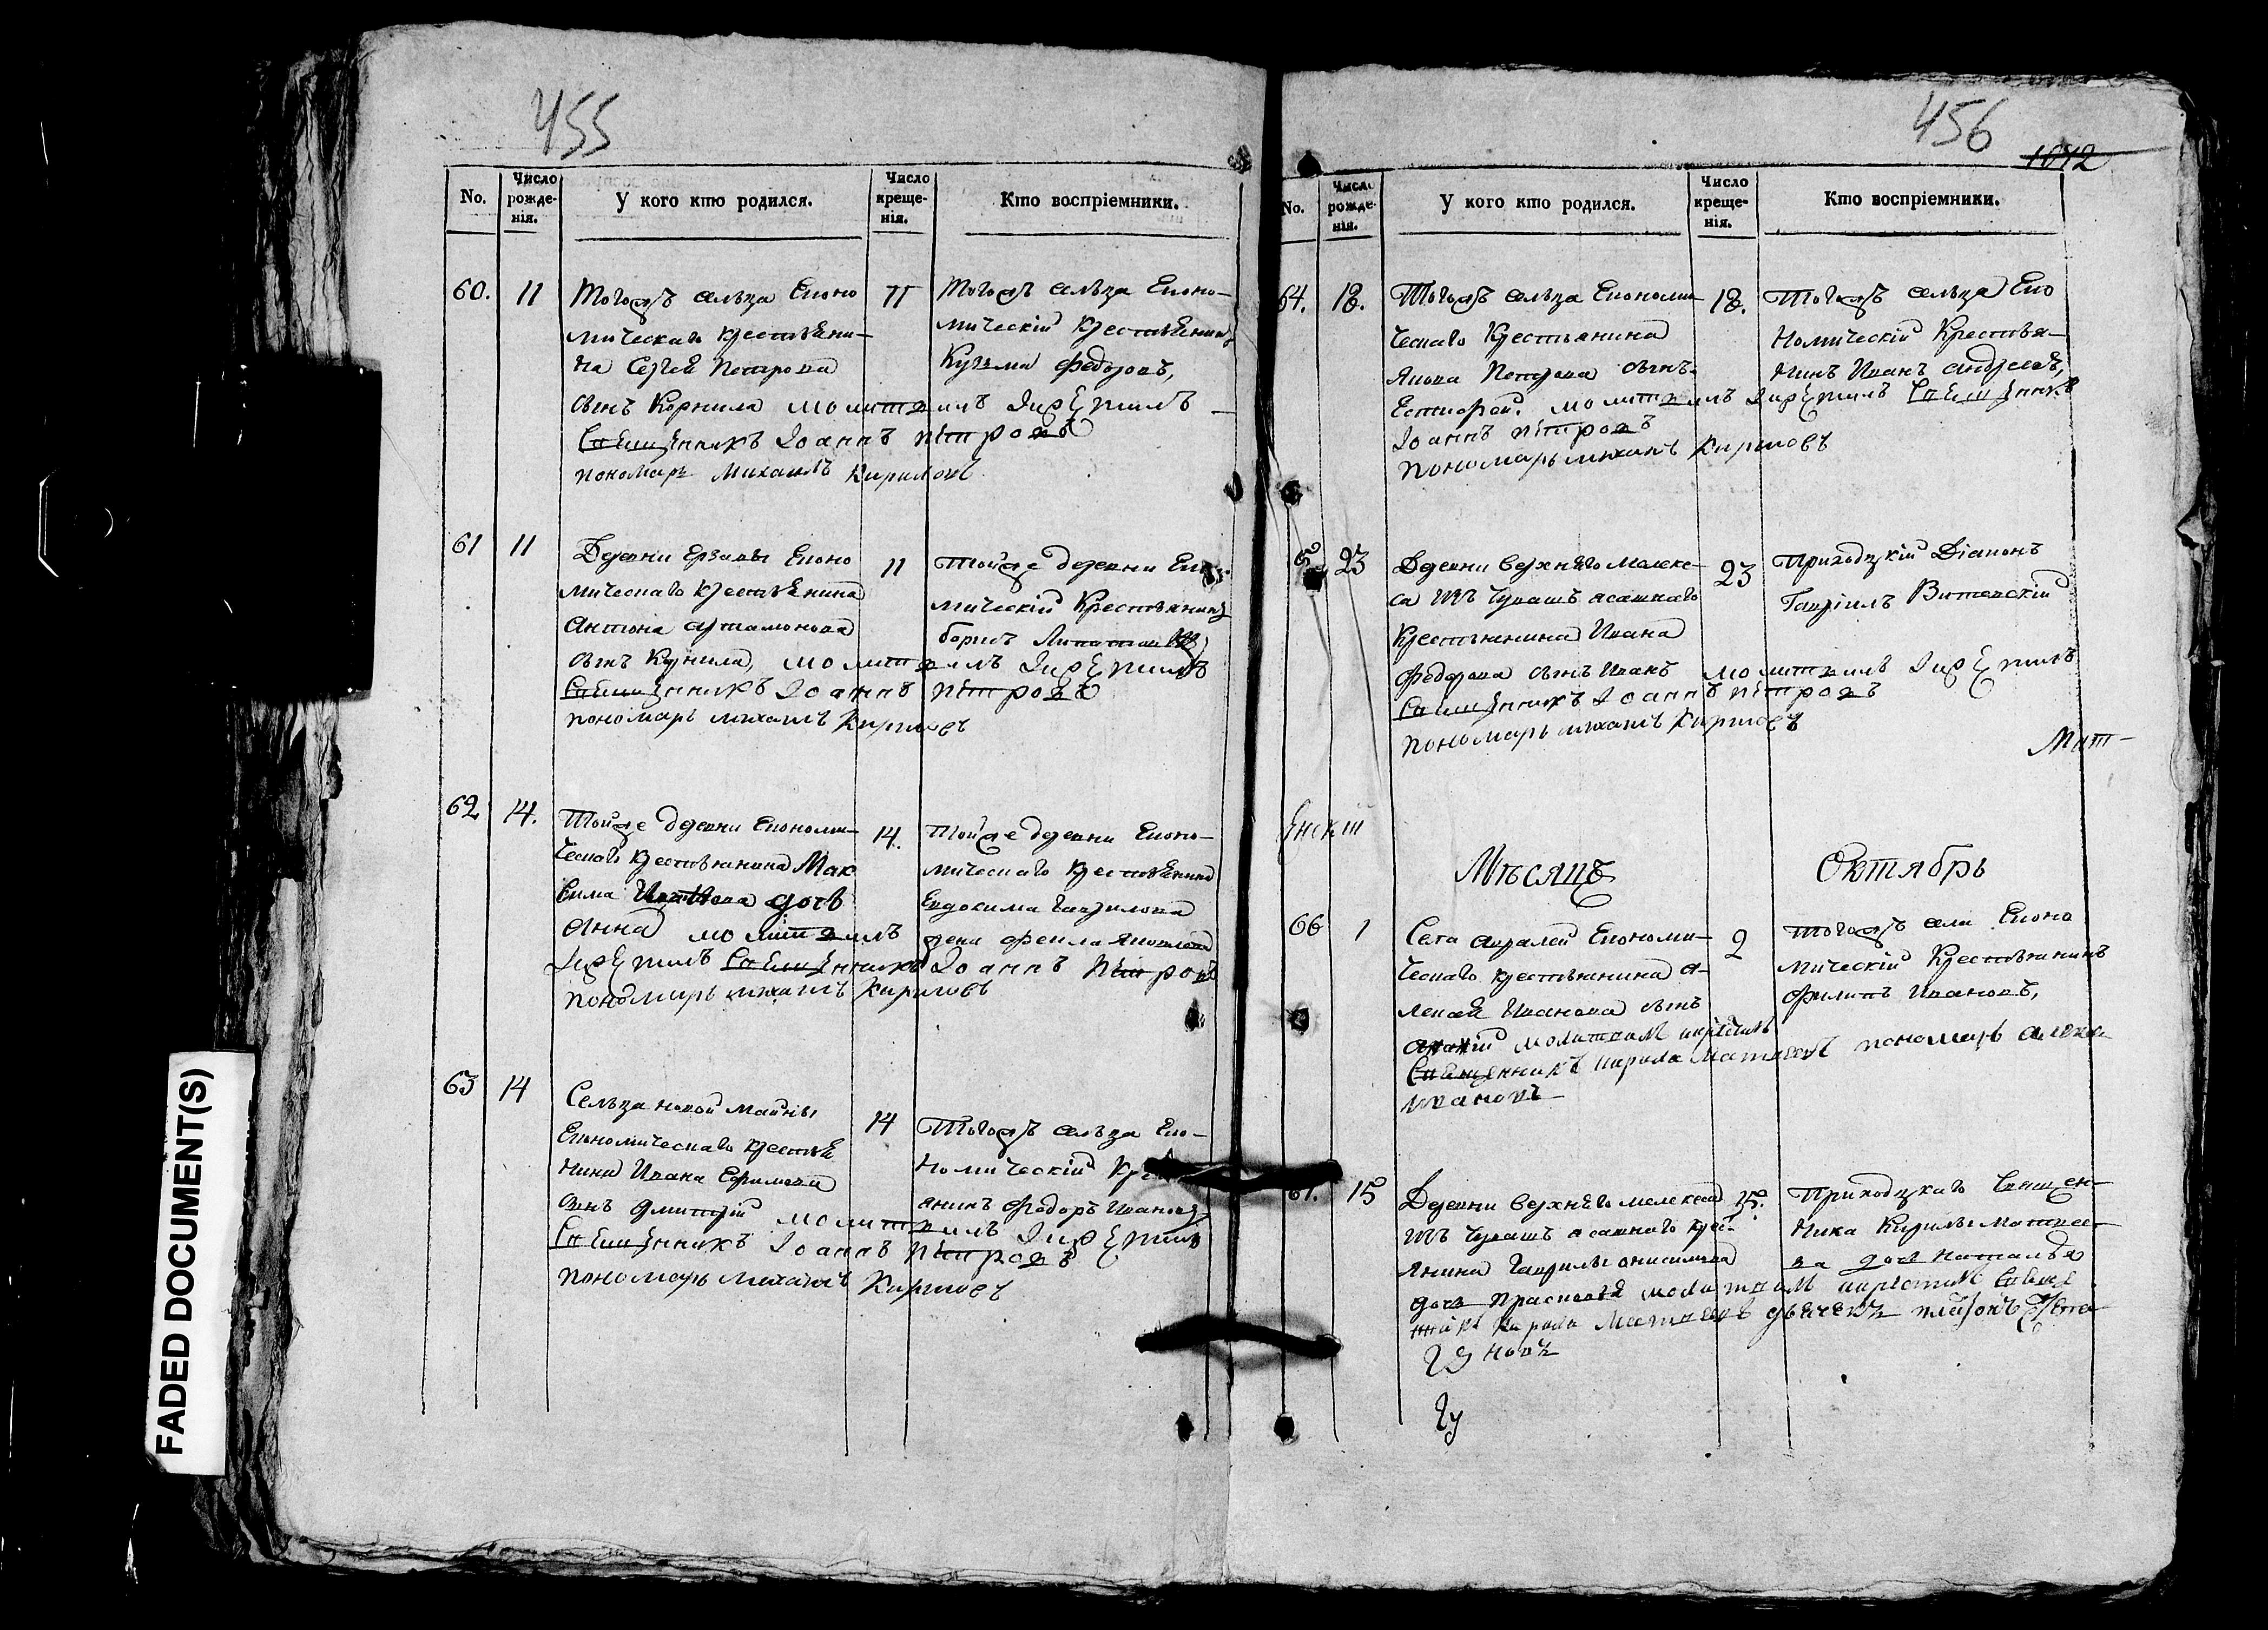 FADED DOCUMENT(S)
455
No.
Число рожде-нія.
У кого кто родился.
Число креще-нія.
Кто воспріемники.
60.
11
Тогожъ сельца Еконо
мическаго крестьяни-
на Сергея Петрова
сынъ Корнила молитвилъ и крестилъ
Священникъ Іоаннъ Петровъ
пономарь Михаилъ Кириловъ
11
Тогожъ сельца Еконо-
мическій Крестьянинъ
Кузма Федоровъ,
61
11
Деревни Ерзавы Еконо
мическаго крестьянина
Антона Артамонова
сынъ Корнила, молитвилъ и крестилъ
Священникъ Іоаннъ Петровъ
пономарь михаилъ Кириловъ
11
Тойже деревни
мическій Крестьянинъ
борисъ
62
14.
Тойже деревни Економи-
ческаго крестьянина Мак
сима дочь
Анна молитвилъ
и крестилъ Священникъ Іоаннъ Петровъ
пономарь михаилъ Кириловъ
14.
Тойже деревни Еконо-
мическаго крестьянина
Евдокима Гаврилова
жена Фекла Яковлева
63
14
Сельца новой майны
Економическаго крестья
нина Ивана Ефимова
сынъ Дмитрій молитвилъ и крестилъ
Священникъ Іоаннъ Петровъ
пономарь михаилъ Кириловъ
14
Тогожъ сельца Еко-
номическій
янинъ Федоръ Ивановъ
456
1042
No.
Число рожде-нія.
У кого кто родился.
Число креще-нія.
Кто воспріемники.
64.
18.
Тогожъ сельца Економи-
ческаго Крестьянина
Якова Петрова сынъ
Естифей. молитвилъ и крестилъ Священникъ
Іоаннъ Петровъ
пономарь михаилъ Кириловъ
18.
Тогожъ сельца Еко
номическій Крестья-
нинъ Иванъ Андреевъ,
65
23
Деревни верхняго Мелеке-
са изъ Чувашъ ясашнаго
Крестьянина Ивана
Федорова сынъ Иванъ молитвилъ и крестилъ
Священникъ Іоаннъ Петровъ
пономарь михаилъ Кириловъ
23
Приходцкій Діаконъ
Гавріилъ Витевскій
Мѣсяцъ
Октябрь
66
1
Села Авралей Економи-
ческаго крестьянина А-
лексея Иванова сынъ
молитвилъ и крестилъ
Священникъ Кирила Матвеевъ пономарь Алексей
Ивановъ
2
тогожъ села Еконо
мическій Крестьянинъ
Филипъ Ивановъ,
67.
15
Деревни верхняго мелекеса
изъ Чувашъ ясашнаго крес-
янина Гаврилы Анисимова
дочь Прасковья молитвилъ и крестилъ Священ
никъ Кирила Матвеевъ дьячекъ
15.
Приходцкаго Священ-
ника Кирилы Матвее-
ва дочь Наталья